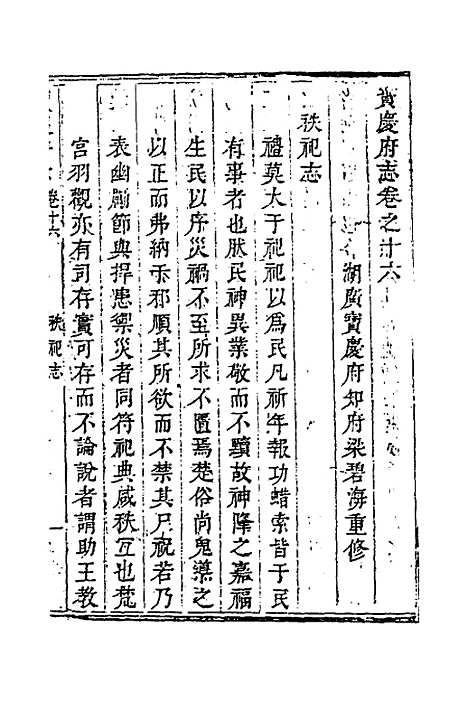 寶慶府志卷之十六
湖廣寶慶府知府梁碧海重修
秩祀志
禮莫大于祀祀以爲民凡祈年報功蜡索皆于民
有事者也肰民神異業敬而不黷故神降之嘉福
生民以序災禍不至所求不匱焉楚俗尚鬼導之
以正而弗納于邪順其所欲而不禁其尸祝若乃
表幽勵節與捍患禦災者同符祀典咸秩互也梵
宫羽觀亦有司存實可存而不論說者謂助王教
卷十六
秩祀志
一